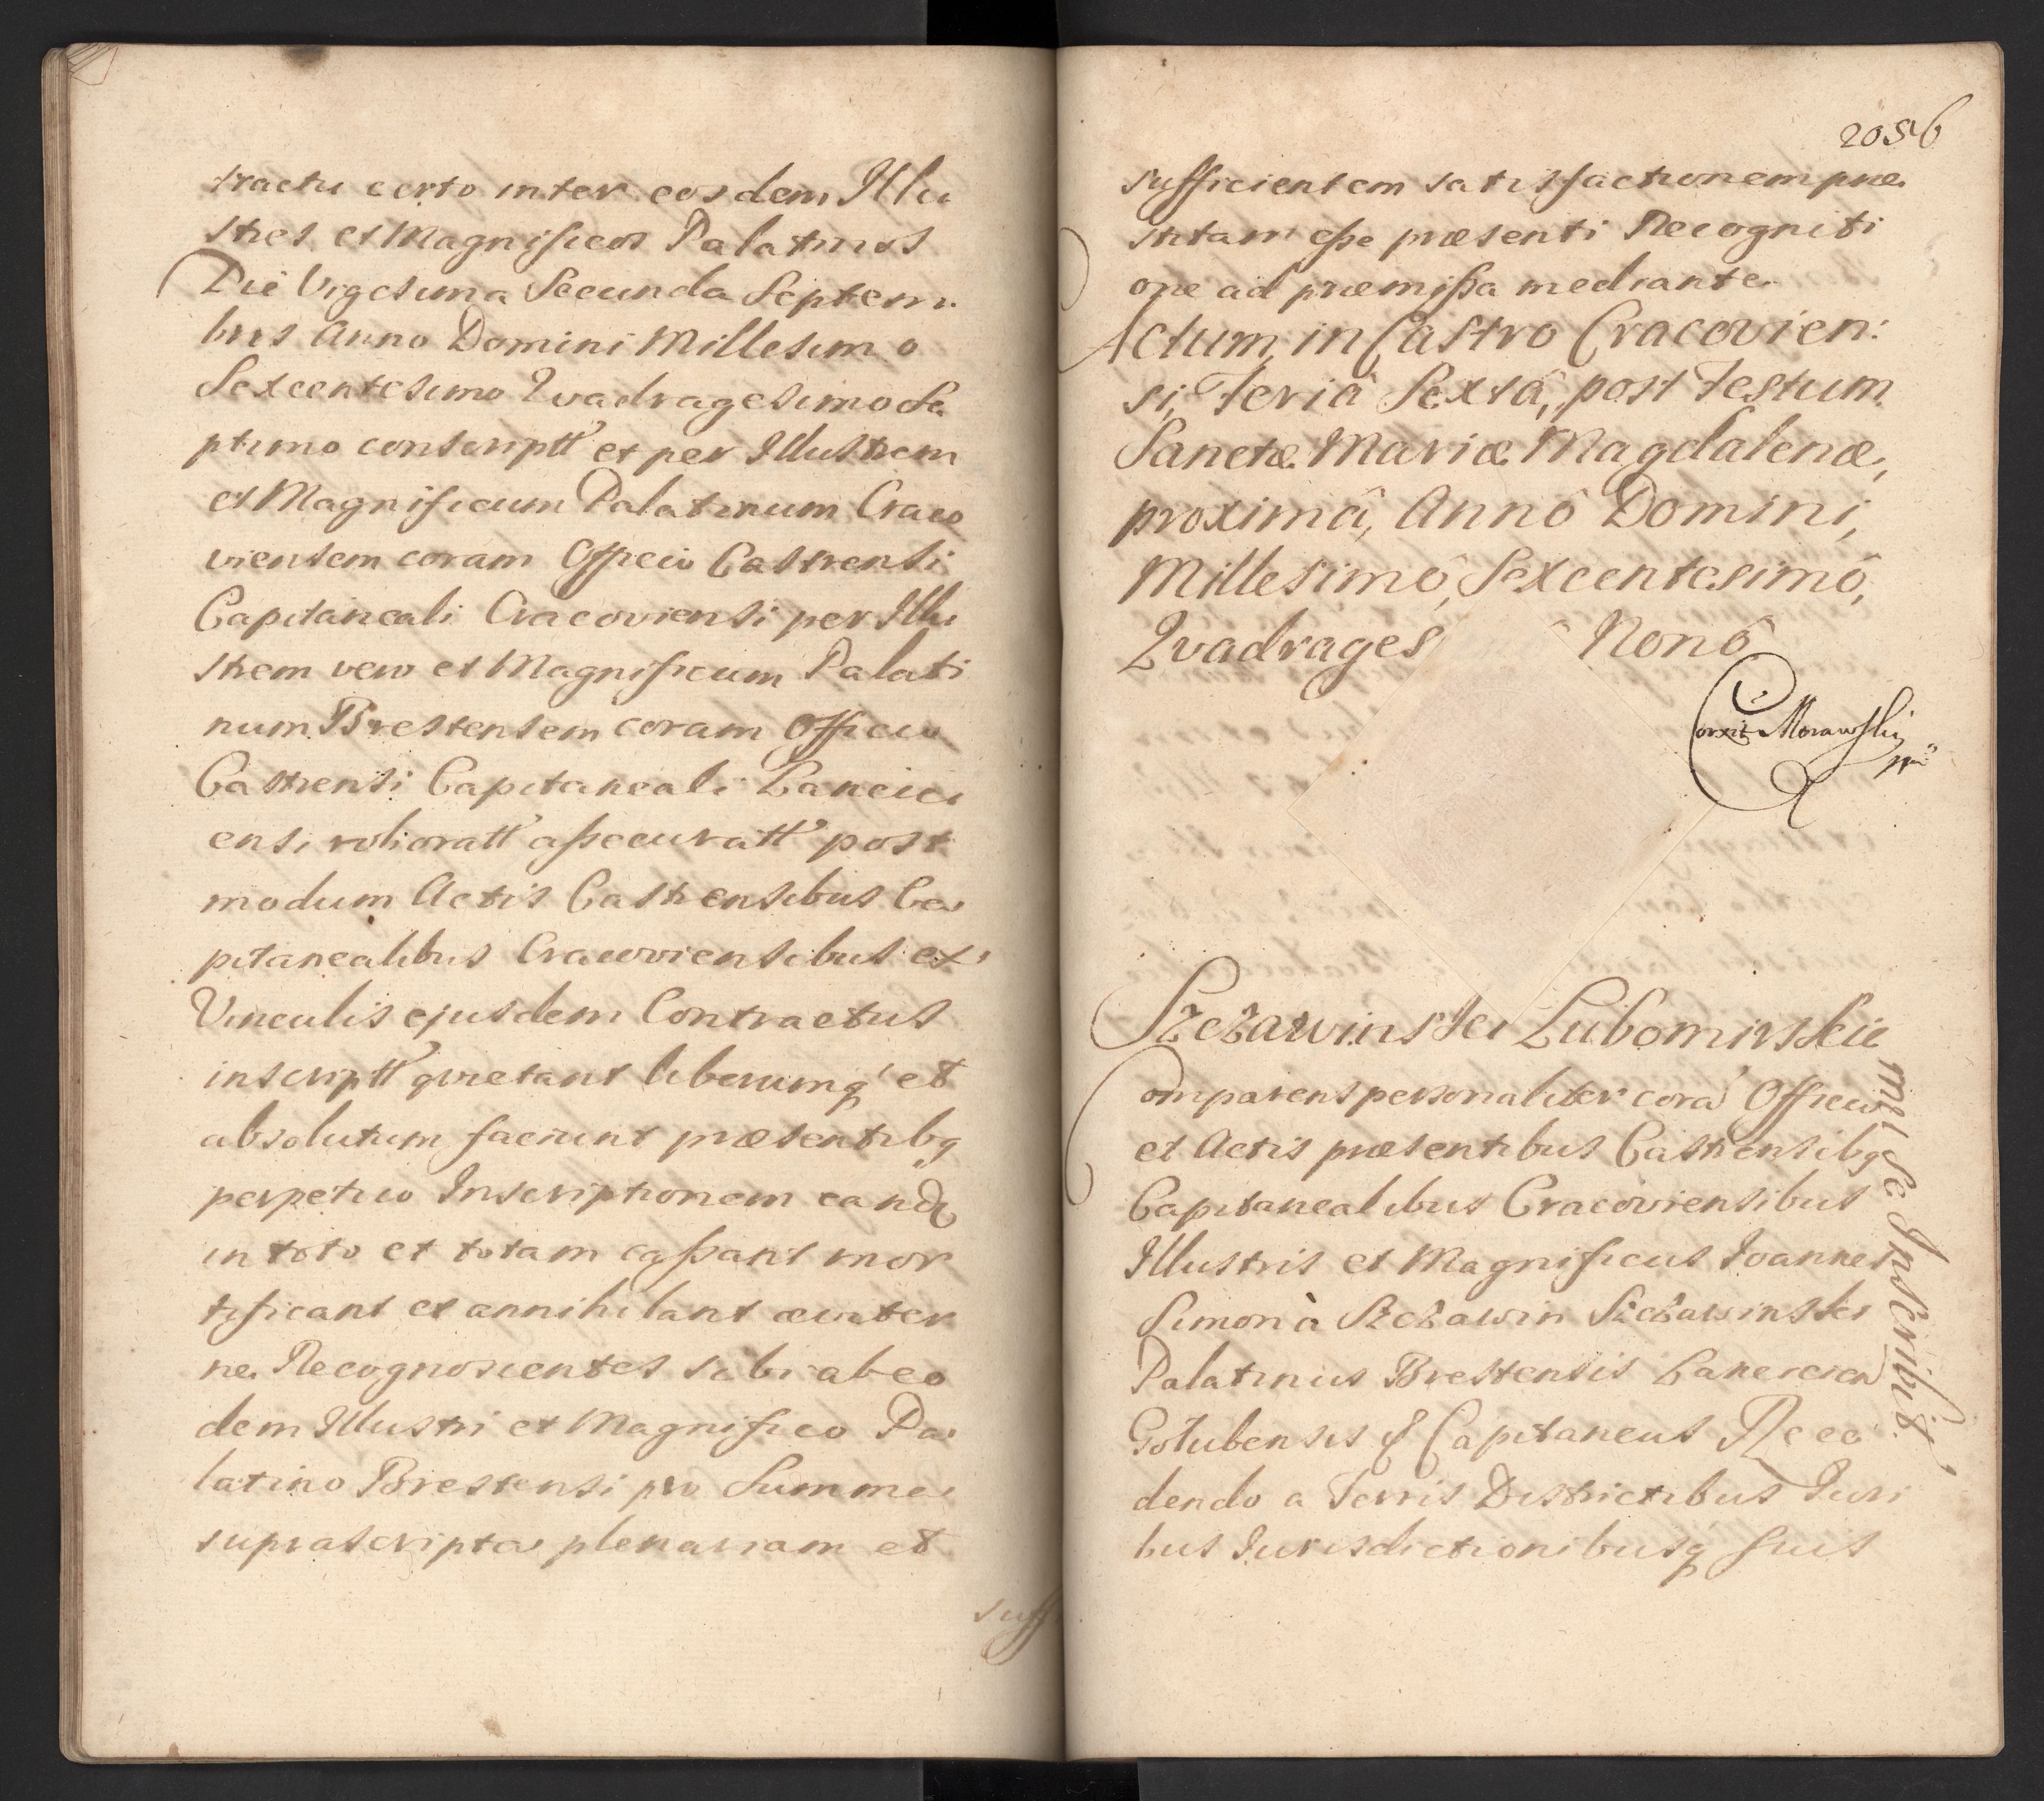 tractu certo inter eosdem Illu
stres et Magnificos Palatinos
Die Vigesima Secunda Septem
bris Anno Domini Millesimo
Sexcentesimo Quadragesimo Se
ptimo conscriptt et per Illustrem
et Magnificum Palatinum Craco
viensem coram Officio Castrensi
Capitaneali Cracoviensi per Illu
strem vero et Magnificum Palati
num Brestensem coram Officio
Castrensi Capitaneali Lancici
ensi roboratt assecuratt post
modum Actis Castrensibus Ca
pitanealibus Cracoviensibus ex
Vinculis ejusdem Contractus
inscriptt quietant liberumq et
absolutum faciunt præsentibq
perpetuo Inscriptionem eand
in toto et totam cassant mor
tificant et annihilant æviter
ne Recognoscentes sibi ab eo
dem Illustri et Magnifico Pa
latino Brestensi pro Summa
suprascripta plenariam et
suff
2056
sufficientem satisfactionem præ
stitam esse præsenti Recogniti
one ad præmissa mediante
Actum in Castro Cracovien:
si, Feriâ Sextâ, post Festum
Sanctæ Mariæ Magdalenæ,
proximâ, Annô Domini,
Millesimô, Sexcentesimô,
Quadrages Nonô
Corrxit Morawski
mpp
Szczawinski Lubomirskie
mu Se Inscribit
Comparens personaliter cora Officio
et Actis præsentibus Castrensibq
Capitanealibus Cracoviensibus
Illustris et Magnificus Ioannes
Simon à Szczawin Szczawinski
Palatinus Brestensis Lancicien
Golubensis & Capitaneus Rece
dendo a Terris Districtibus Iuri
bus Iurisdictionibusq suis